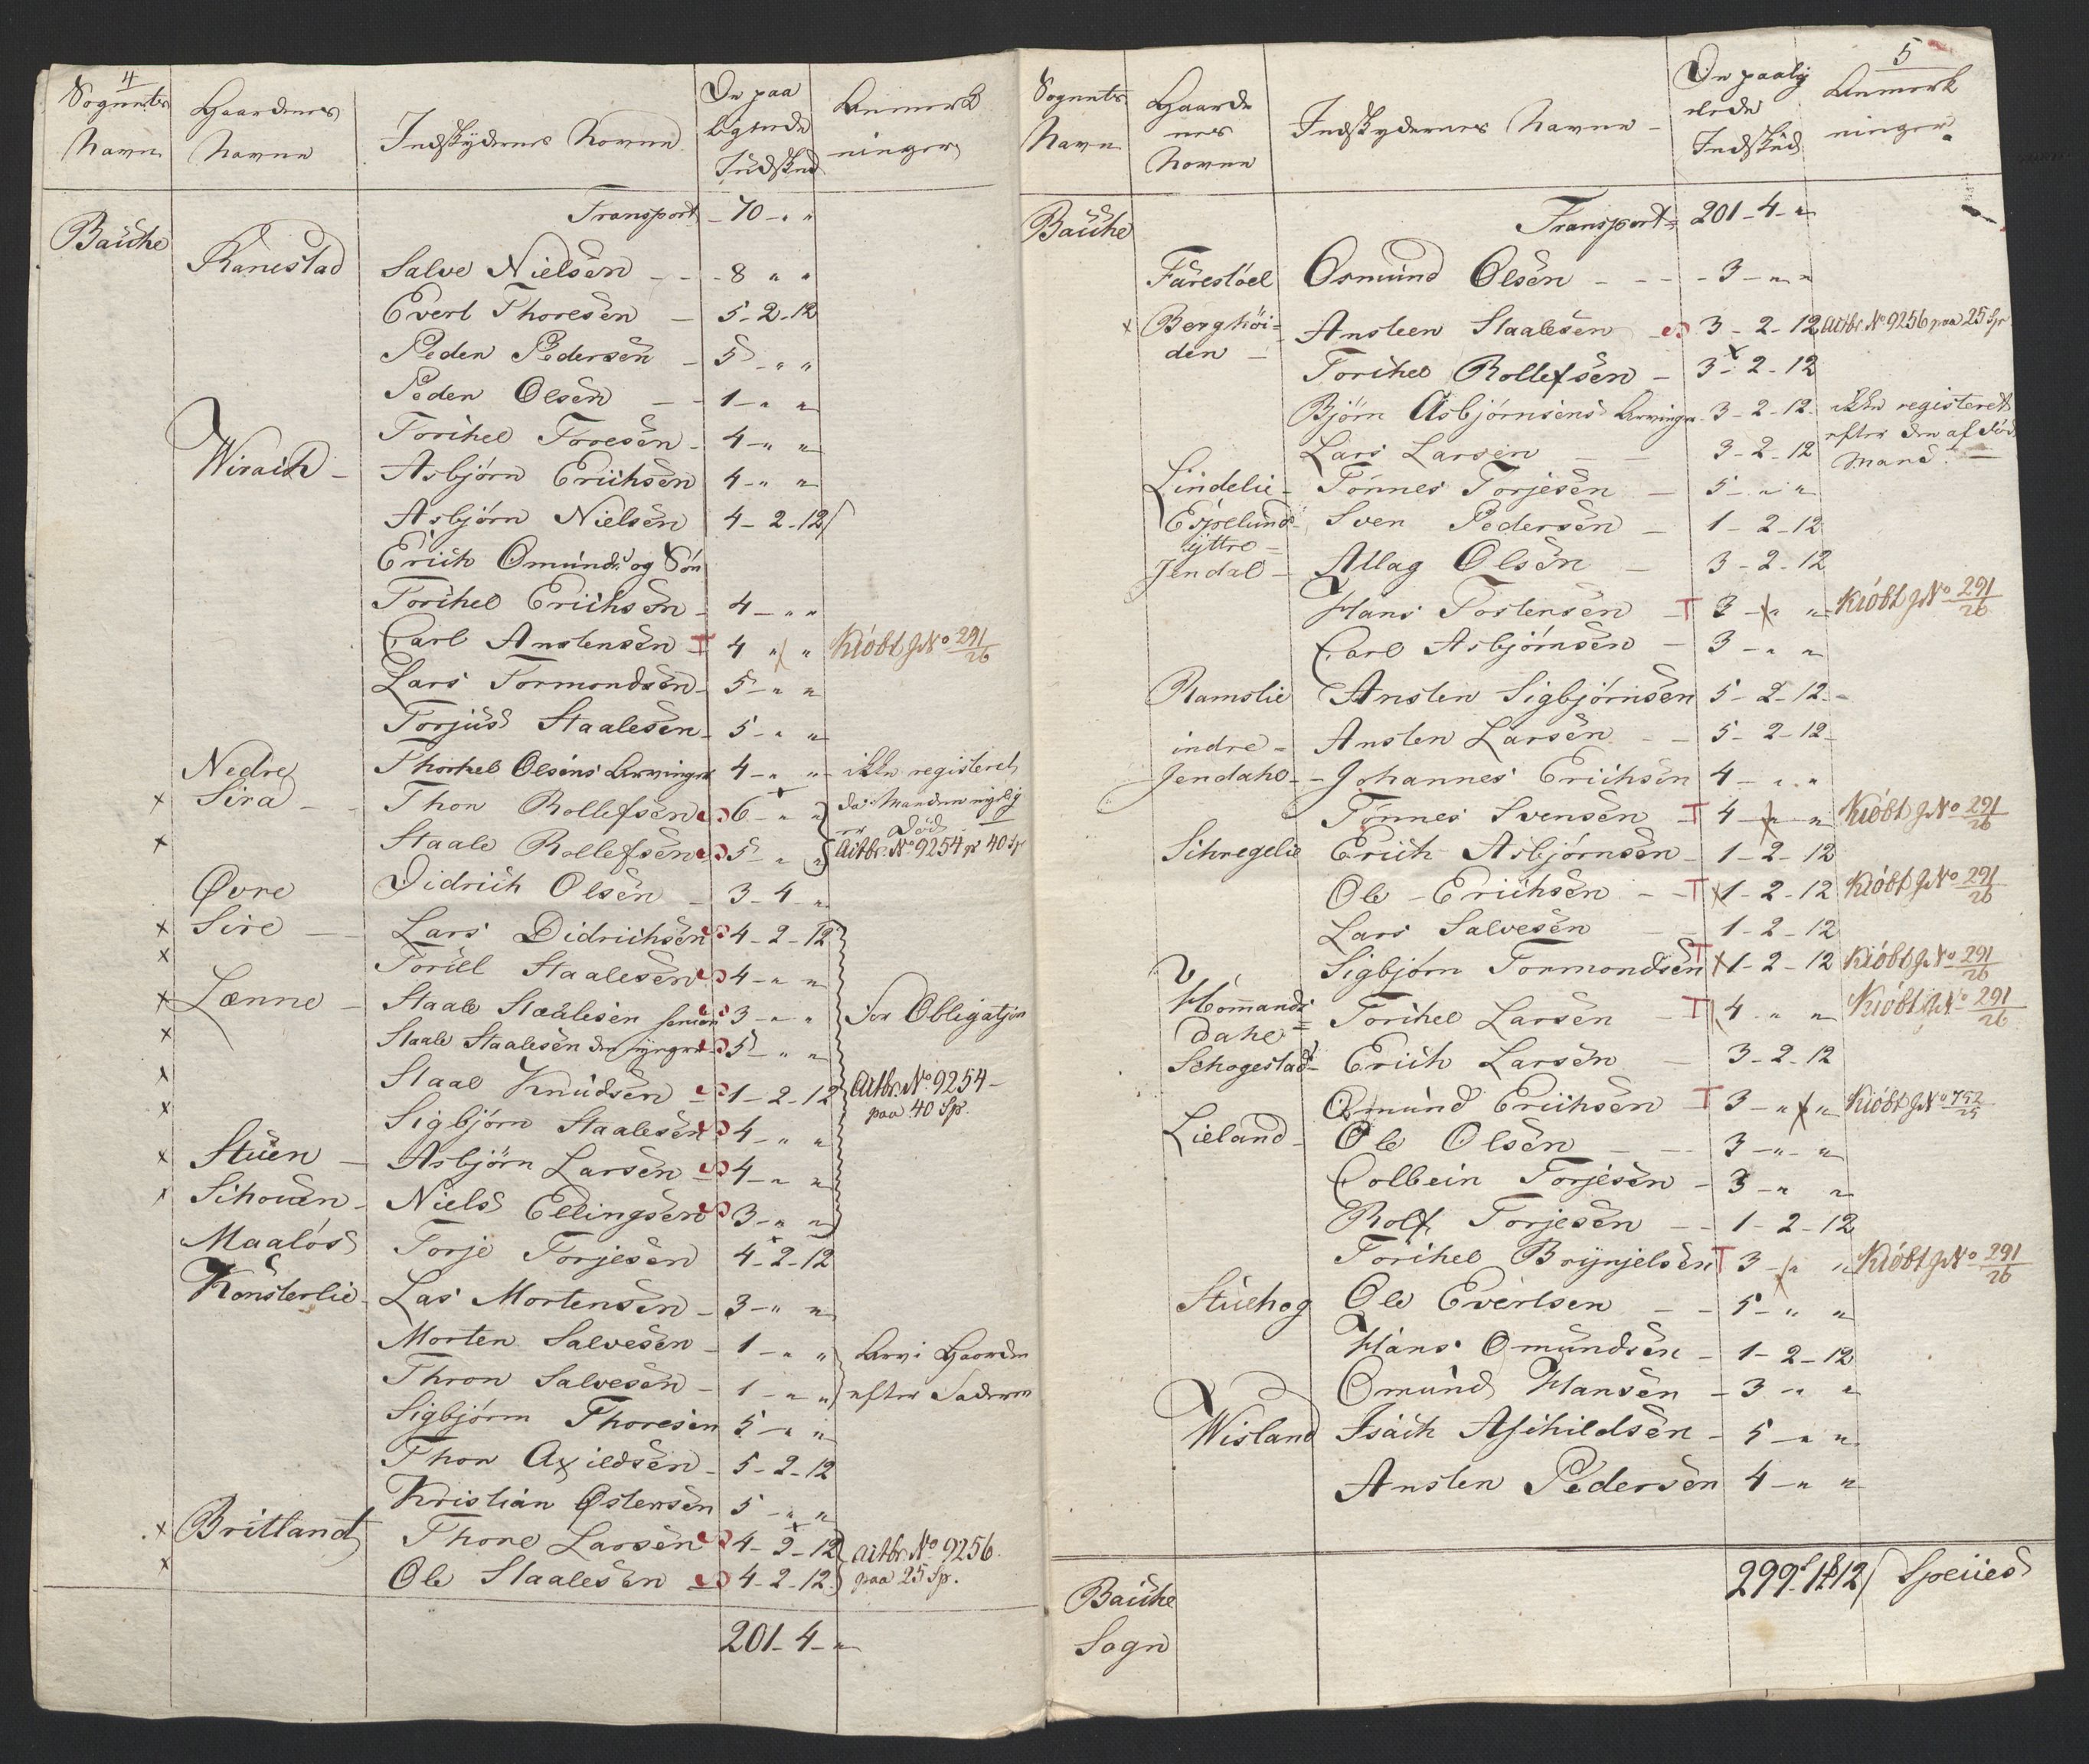 4
Sognets Navn | Gaardenes Navne | Indskydernes Navne | De paa lignede Indskud | Anmærk ninger
Transport - 70 - " "
Bache
Ranestad | Salve Nielsen - - | - 8 " "
Evert Thoresen - | 5 - 2 - 12
Peder Pedersen - | 5 - " "
Peder Olsen - - | 1 - " "
Torchel Toresen - | 4 - " "
Wirach - | Asbjørn Erichsen | 4 - " "
Asbjørn Nielsen | 4 - 2 - 12
Erich Omunds og Søn
Torchel Erichsen - | 4 - " "
Carl Anstensen T | 4 " " | Kiøbt J No 291/26
Lars Tormondsen - | 5 - " "
Torjus Staalesen - | 5 - " "
Nedre | Thorkel Olsens Arvinger | 4 - " " | ikke registeret
x Sira - - | Thor Rollefsen | 6 - " " | da Manden nylig
er død
x | Staale Rollefsen | 5 - " " | Actbr. No 9254 pr 40 Sp
Øvre | Didrich Olsen - | 3 - 4 - "
x Sire - | Lars Didrichsen | 4 - 2 - 12
x | Torkel Staalesen | 4 - " "
x Lænne - | Staale Staalesen senior | 3 - " " | For Obligatjon
x | Staale Staalesen den yngre | 5 - " "
x | Staal Knudsen - | 1 - 2 - 12 | Actbr. No 9254 -
paa 40 Sp.
x | Sigbjørn Staalesen | 4 - " "
x Stuen - | Asbjørn Larsen - | 4 - " "
x Schouen - | Niels Ellingsen | 3 - " "
Maaløs | Torje Torjesen | 4 - 2 - 12
Konsterlie - | Las Mortensen - | 3 - " "
Morten Salvesen - | 1 - " " | Arvi Gaarden
Thron Salvesen - | 1 - " " | efter Faderen
Sigbjørn Thoresen | 5 - " "
Thor Axildsen - | 5 - 2 - 12
Kristian Østensen | 5 - " "
x Britland | Thore Larsen | 4 - 2 - 12 | Actbr. No 9256
x | Ole Staalesen | 4 - 2 - 12 | paa 25 Sp.
201 - 4 - "
5
Sognets Navn | Gaarde nes Navne | Indskydernes Navne - | De paalig nede Indskud | Anmærk ninger
Transport - 201 - 4 - "
Bache
Farestøel | Osmund Olsen - - - | - 3 - " "
x Berghöi= | Ansteen Staalesen - | 3 - 2 - 12 | Actbr No 9256 paa 25 Sp
den - | Torchel Rollefsen - | 3 - 2 - 12
Bjørn Asbjørnsens Arvinger | 3 - 2 - 12 | ikke registeret
Lars Larsen - - | 3 - 2 - 12 | efter den af død
Mand. -
Lindelie - | Tönnes Torjesen - | 5 - " "
Espelund | Sven Pedersen - | 1 - 2 - 12
yttre -
Jendal - | Atlag Olsen - | 3 - 2 - 12
Hans Tostensen - T | 3 - " " | Kiøbt J No 291/26
Carl Asbjørnsen - | 3 - " "
Ramslie | Ansten Sigbjörnsen | 5 - 2 - 12 -
indre - | Ansten Larsen - - | 5 - 2 - 12 -
Jendahl - | Johannes Erichsen | 4 - " "
Tønnes Svensen T | 4 - " " | Kiøbt J No 291/26
Schregelie | Erich Asbjørnsen - | 1 - 2 - 12
Ole Erichsen - - T | 1 - 2 - 12 | Kiøbt J No 291/26
Lars Salvesen - - | 1 - 2 - 12
Sigbjørn Tormondsen T | 1 - 2 - 12 | Kiøbt J No 291/26
Hommands=
dahl = | Torchel Larsen - T | 4 " " | Kiøbt J No 291/26
Schogestad - | Erich Larsen - | 3 - 2 - 12
Omund Erichsen - T | 3 - " " | Kiøbt J No 752/25
Lieland - | Ole Olsen - - | 3 - " "
Colbein Torjesen - | 3 - " "
Rolf Torjesen - - | 1 - 2 - 12
Torchel Brynjelsen T | 3 - " " | Kiøbt J No 291/26
Stuehog | Ole Evertsen - - | 5 - " "
Hans Omundsen - | 1 - 2 - 12
Omund Hansen - | 3 " "
Wisland | Isach Aschildsen - | 5 - " "
Ansten Pedersen | 4 - " "
Bache
Sogn | 299 - 1 - 12 Species